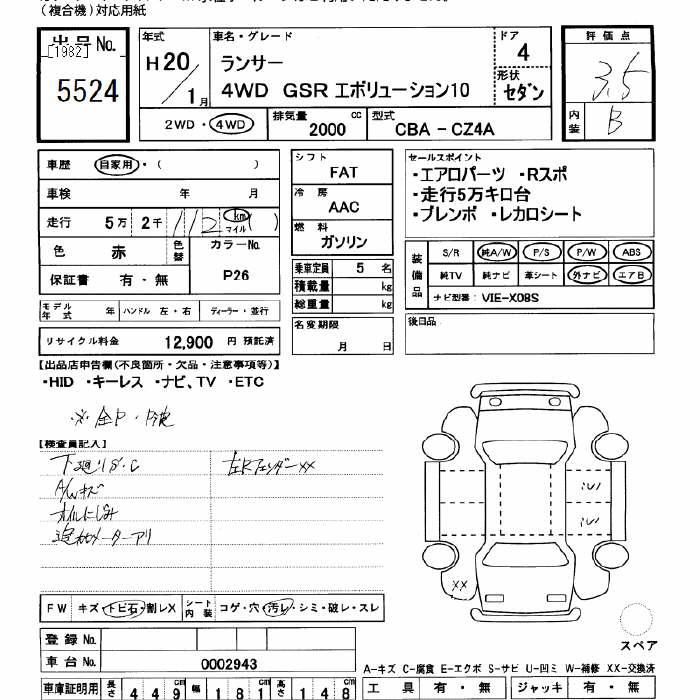 （複合機）対応用紙
出品No.
[1982]
5524
年式
H20/1月
車名・グレード
ランサー
4WD GSR エボリューション10
ドア
4
形状
セダン
2WD・4WD
排気量 2000 cc
型式 CBA - CZ4A
評価点
3.5
内装 B
車歴 自家用・( )
車検 年 月
走行 5万 2千 112 km マイル ( )
色 赤 色替 カラーNo. P26
保証書 有・無
モデル年式 年 ハンドル 左・右 ディーラー・並行
リサイクル料金 12,900 円 預託済
シフト
FAT
冷房
AAC
燃料
ガソリン
乗車定員 5 名
積載量 kg
総重量 kg
名変期限
月 日
セールスポイント
・エアロパーツ ・Rスポ
・走行5万キロ台
・ブレンボ ・レカロシート
装備品
S/R 純A/W P/S P/W ABS
純TV 純ナビ 革シート 外ナビ エアB
ナビ型番： VIE-X08S
後日品
【出品店申告欄(不良箇所・欠品・注意事項等)】
・HID ・キーレス ・ナビ、TV ・ETC
【検査員記入】
下廻りサ・C
左Rフェンダーxx
A/Wキズ
オイルにじみ
追加メーターアリ
XX
FW キズ・トビ石・割レX シート内装 コゲ・穴・汚レ・シミ・破レ・スレ
登録No.
車台No. 0002943
車庫証明用 長さ 449 cm 幅 181 cm 高さ 148 cm
スペア
A-キズ C-腐食 E-エクボ S-サビ U-凹ミ W-補修 XX-交換済
工具 有・無 ジャッキ 有・無